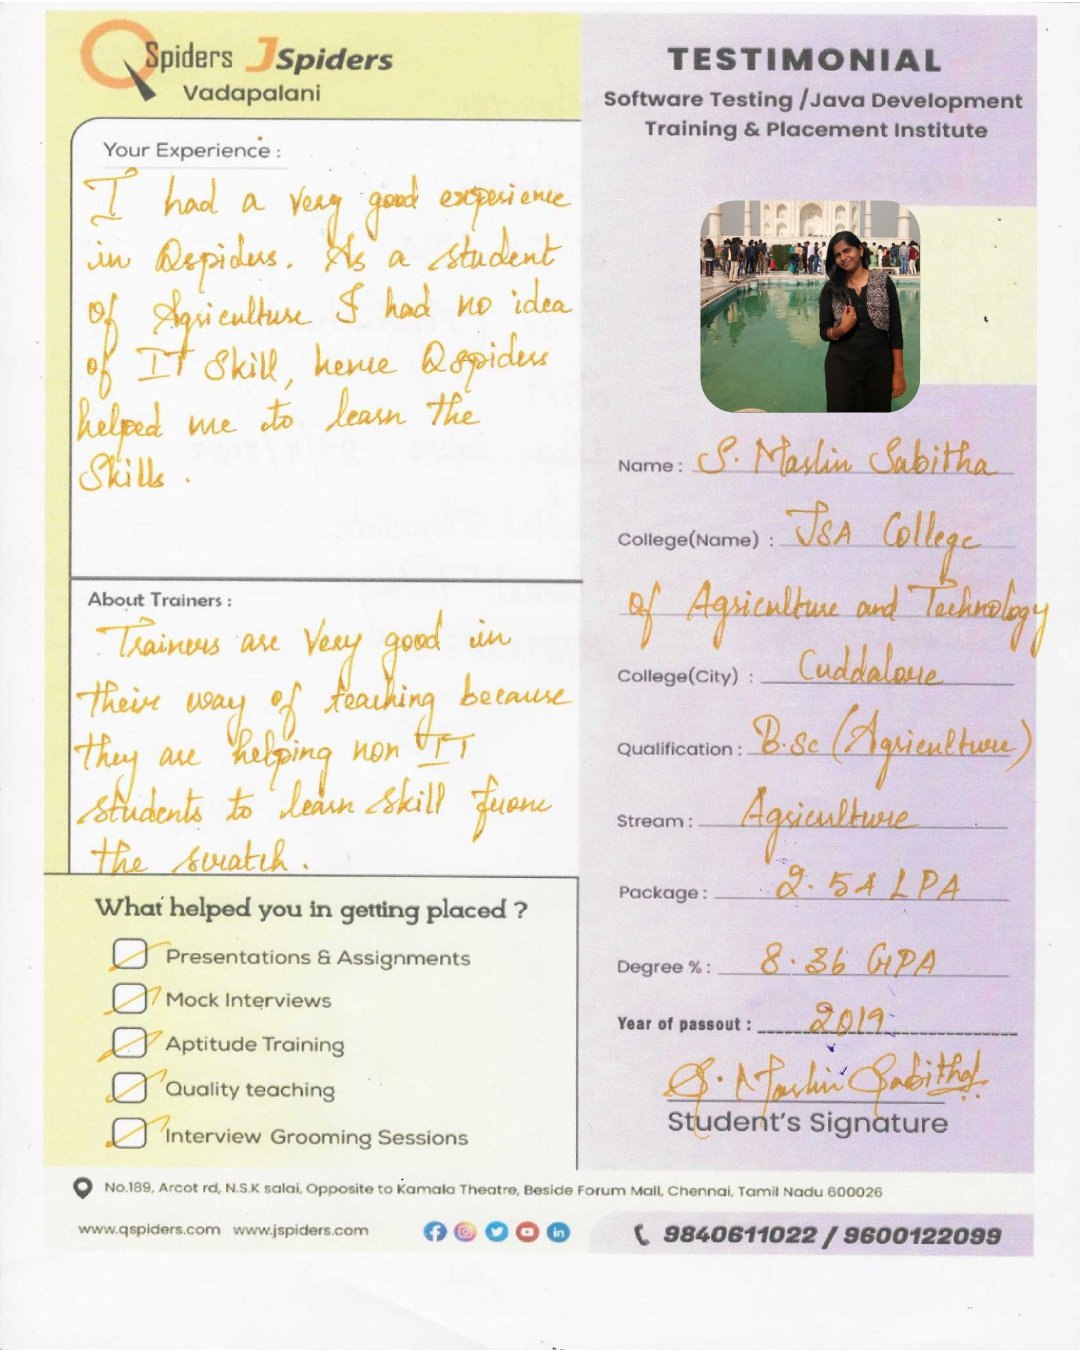 QSpiders JSpiders
Vadapalani
TESTIMONIAL
Software Testing /Java Development
Training & Placement Institute
Your Experience :
I had a very good experience
in Qspiders. As a student
of Agriculture I had no idea
of IT Skill, hence Qspiders
helped me to learn the
Skills .
About Trainers :
Trainers are Very good in
their way of teaching because
they are helping non IT
students to learn skill from
the scratch .
What helped you in getting placed ?
Presentations & Assignments
Mock Interviews
Aptitude Training
Quality teaching
Interview Grooming Sessions
Name : S. Maslin Sabitha
College(Name) : JSA College
of Agriculture and Technology
College(City) : Cuddalore
Qualification : B.Sc (Agriculture)
Stream : Agriculture
Package : 2.54 LPA
Degree % : 8.36 GPA
Year of passout : 2019
S. Maslin Sabitha
Student's Signature
No.189, Arcot rd, N.S.K salai, Opposite to Kamala Theatre, Beside Forum Mall, Chennai, Tamil Nadu 600026
www.qspiders.com www.jspiders.com
9840611022 / 9600122099